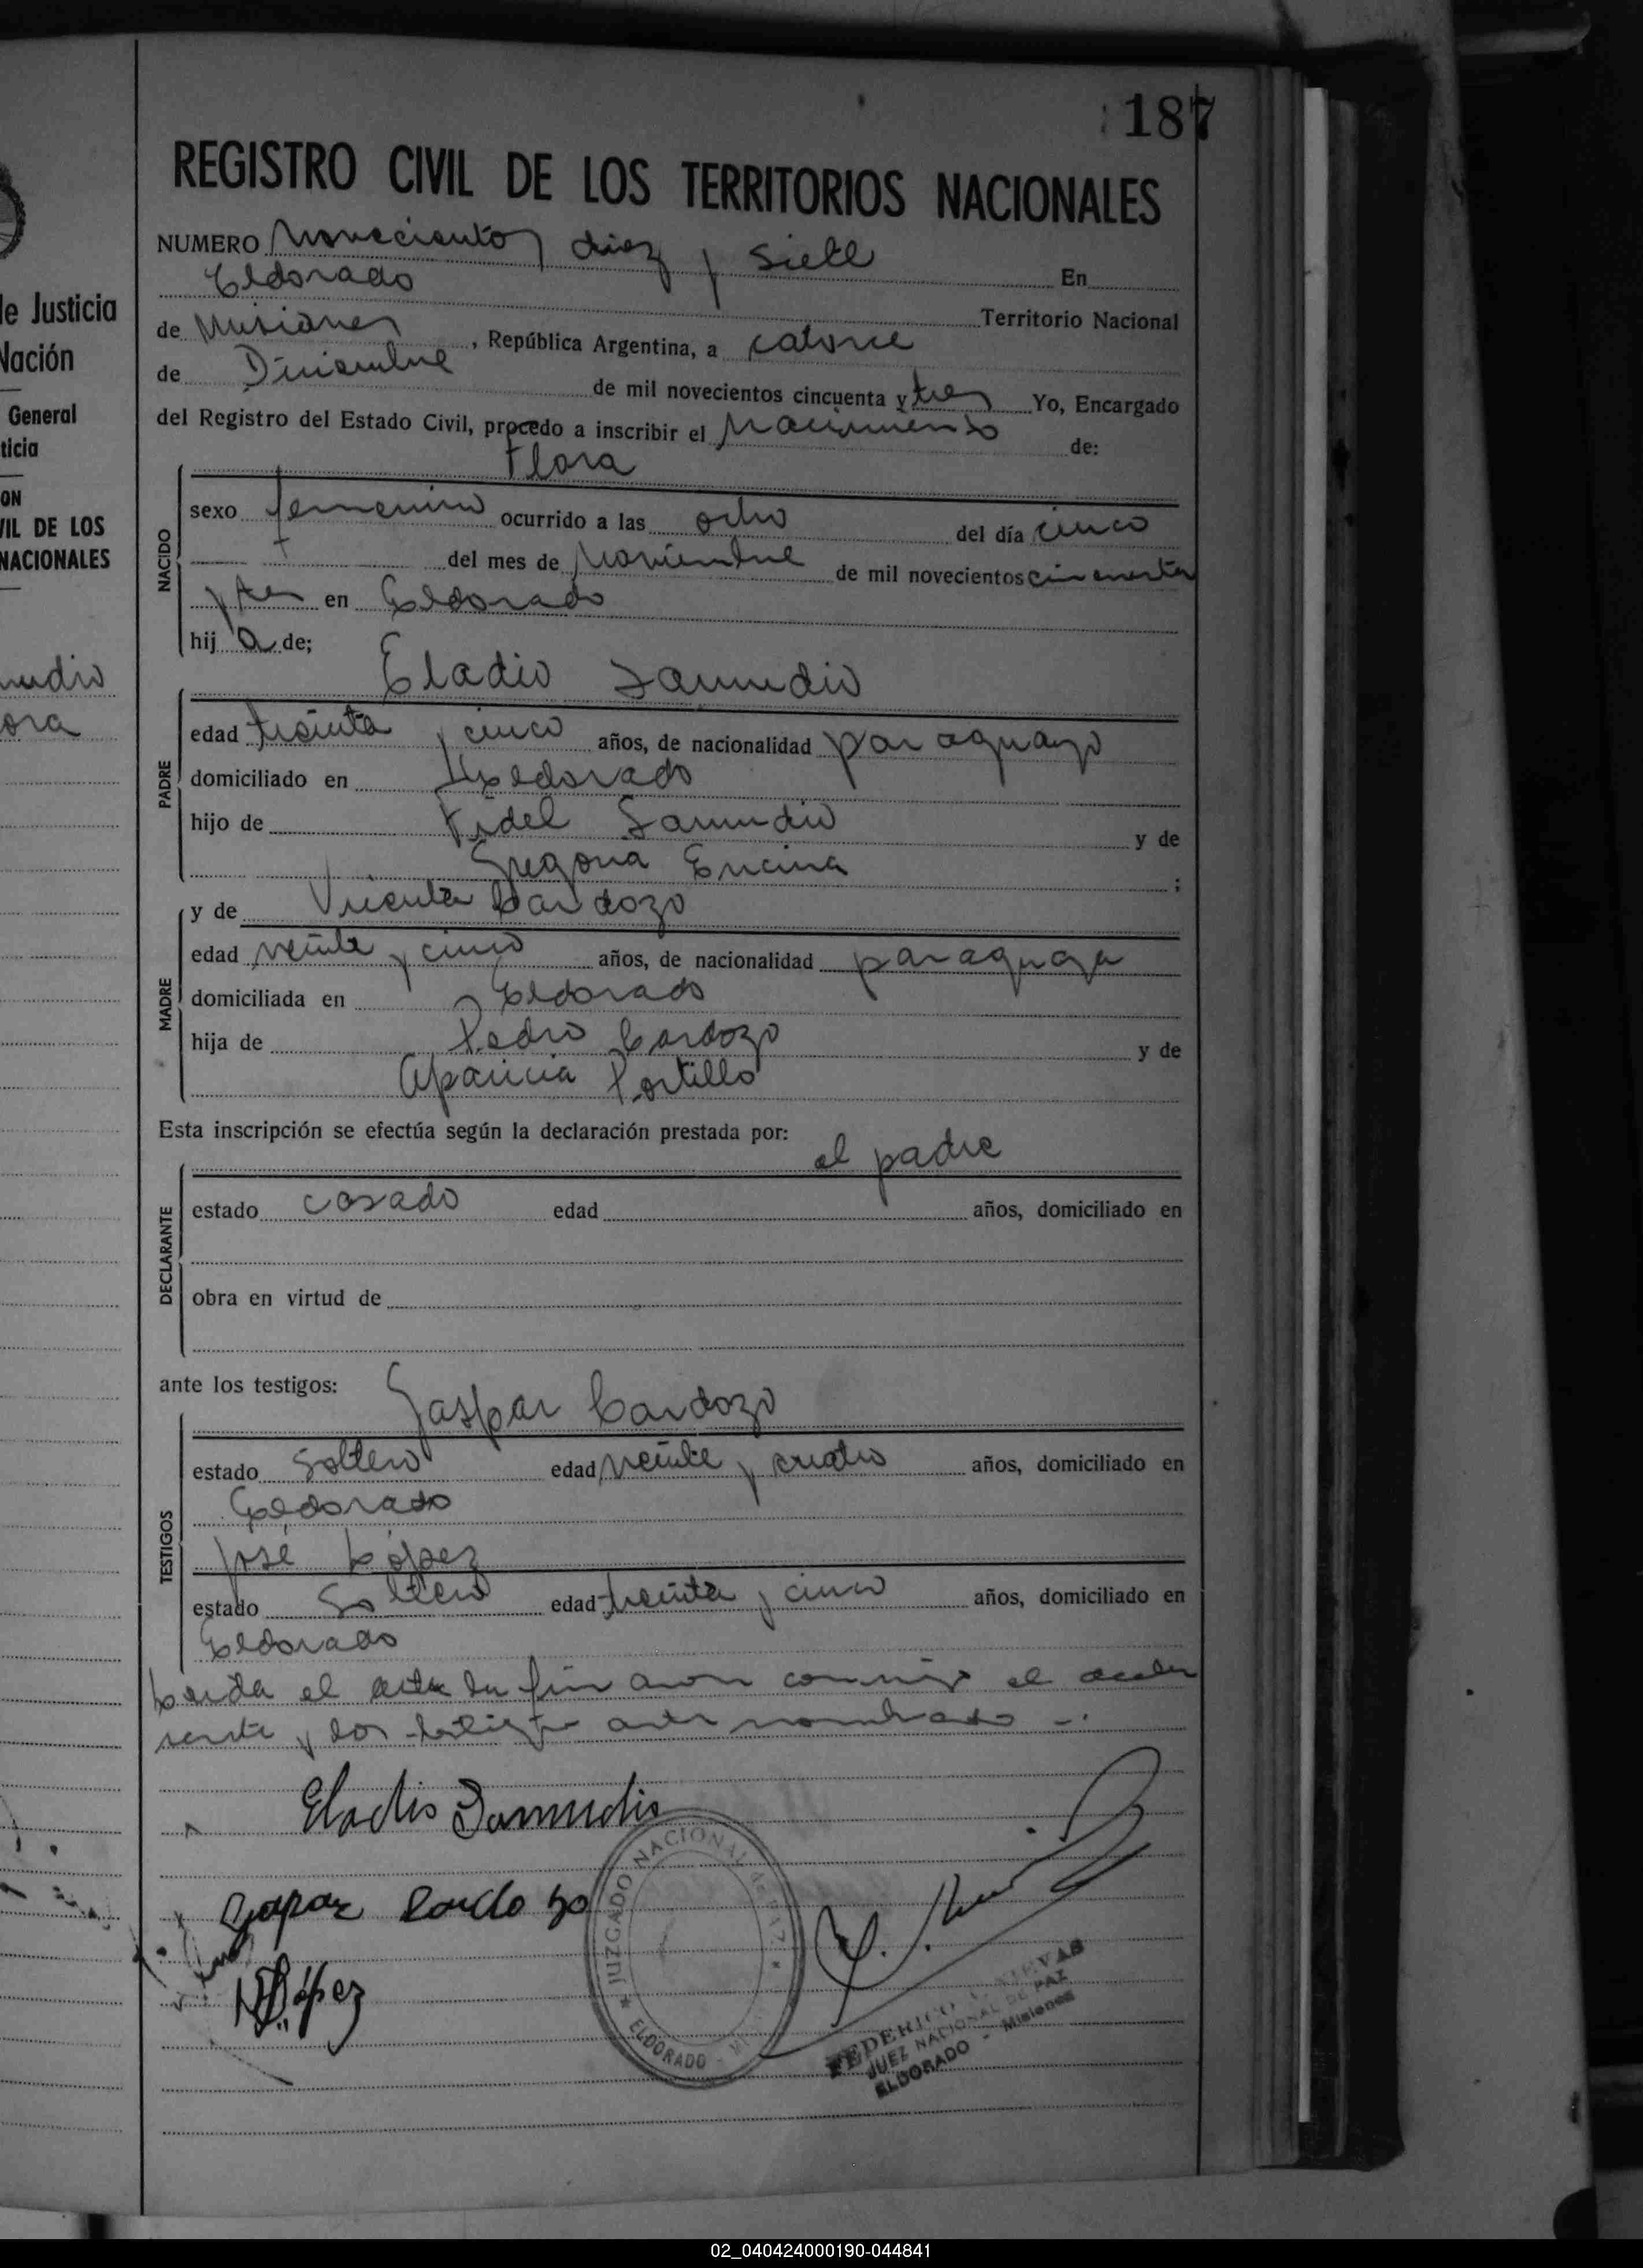 187
REGISTRO CIVIL DE LOS TERRITORIOS NACIONALES
NUMERO Novecientos diez y siete En
Eldorado Territorio Nacional
de Misiones, República Argentina, a catorce
de Diciembre de mil novecientos cincuenta y tres Yo, Encargado
del Registro del Estado Civil, procedo a inscribir el Nacimiento de:
Flora
NACIDO
sexo femenino ocurrido a las ocho del día cinco
del mes de Noviembre de mil novecientos cincuenta
y tres en Eldorado
hija de;
Eladio Samudio
PADRE
edad treinta y cinco años, de nacionalidad paraguayo
domiciliado en Eldorado
hijo de Fidel Samudio y de
Gregoria Encina ;
y de Vicenta Cardozo
MADRE
edad veinte y cinco años, de nacionalidad paraguaya
domiciliada en Eldorado
hija de Pedro Cardozo y de
Aparicia Portillo
Esta inscripción se efectúa según la declaración prestada por:
el padre
DECLARANTE
estado casado edad años, domiciliado en
obra en virtud de
ante los testigos: Gaspar Cardozo
TESTIGOS
estado soltero edad veinte y cuatro años, domiciliado en
Eldorado
José López
estado soltero edad treinta y cinco años, domiciliado en
Eldorado
Leida el acta la firmaron conmigo el decla
rante y los testigos antes nombrado -.
Eladio Samudio
Gaspar Cardozo
López
JUZGADO NACIONAL DE PAZ
ELDORADO
FEDERICO
JUEZ NACIONAL DE PAZ
ELDORADO - Misiones
de Justicia
Nación
General
ticia
ON
VIL DE LOS
NACIONALES
mudio
ora
02_040424000190-044841